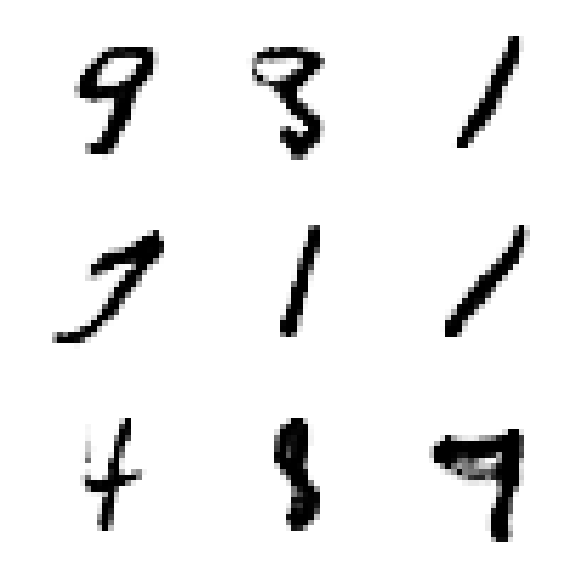 9 8 1
7 1 1
4 8 9